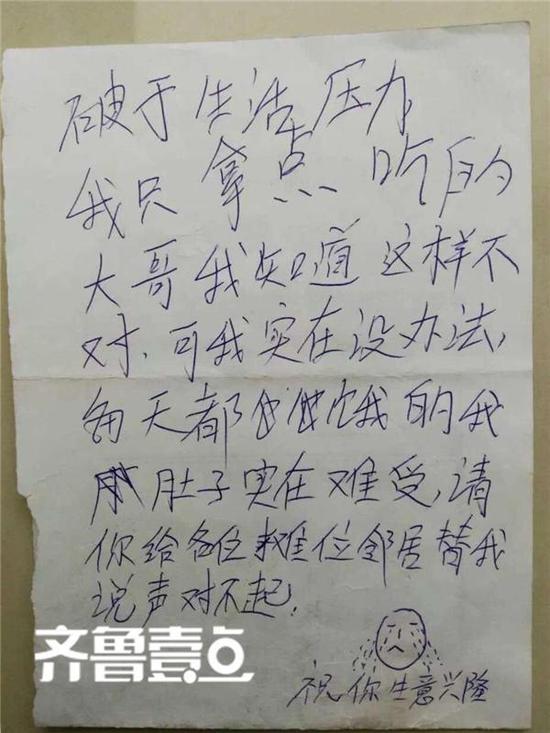 破于生活压力
我只拿点吃的
大哥我知道这样不
对、可我实在没办法,
每天都饿的我
肚子实在难受,请
你给各位摊位邻居替我
说声对不起!
祝你生意兴隆
齐鲁壹点